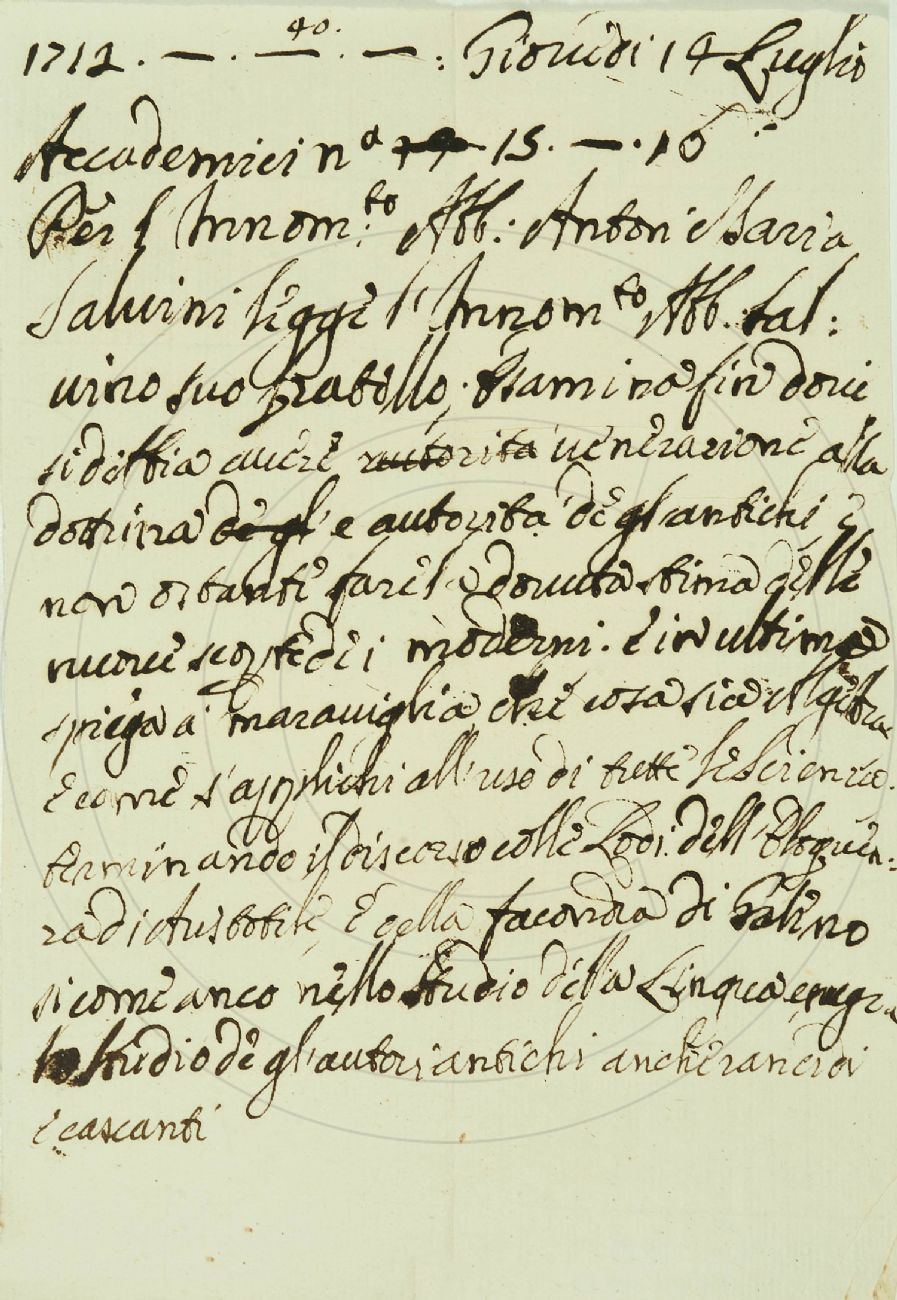 1712. — . 40. — . — : Giovedi 14 Luglio
Accademici n.º 15. — . 16
Per l'Innom.to Abb: Anton Maria
Salvini legge l'Innom.to Abb. Sal:
vino suo fratello. Esamina fin dove
si debbia avere autorità venerazione alla
dottrina de gl' e autorità de gl'antichi, e
non ostante fare la dovuta stima delle
nuove scoperte de i moderni. E in ultimo
spiega a maraviglia che cosa sia Algebra
e come s'applichi all'uso di tutte le scienze.
terminando il discorso colle Lodi dell'Eloquen:
za di e della facondia di Galeno
si come anco nello Studio della Lingua
lo Studio de gl'autori antichi anche rancidi
e cascanti